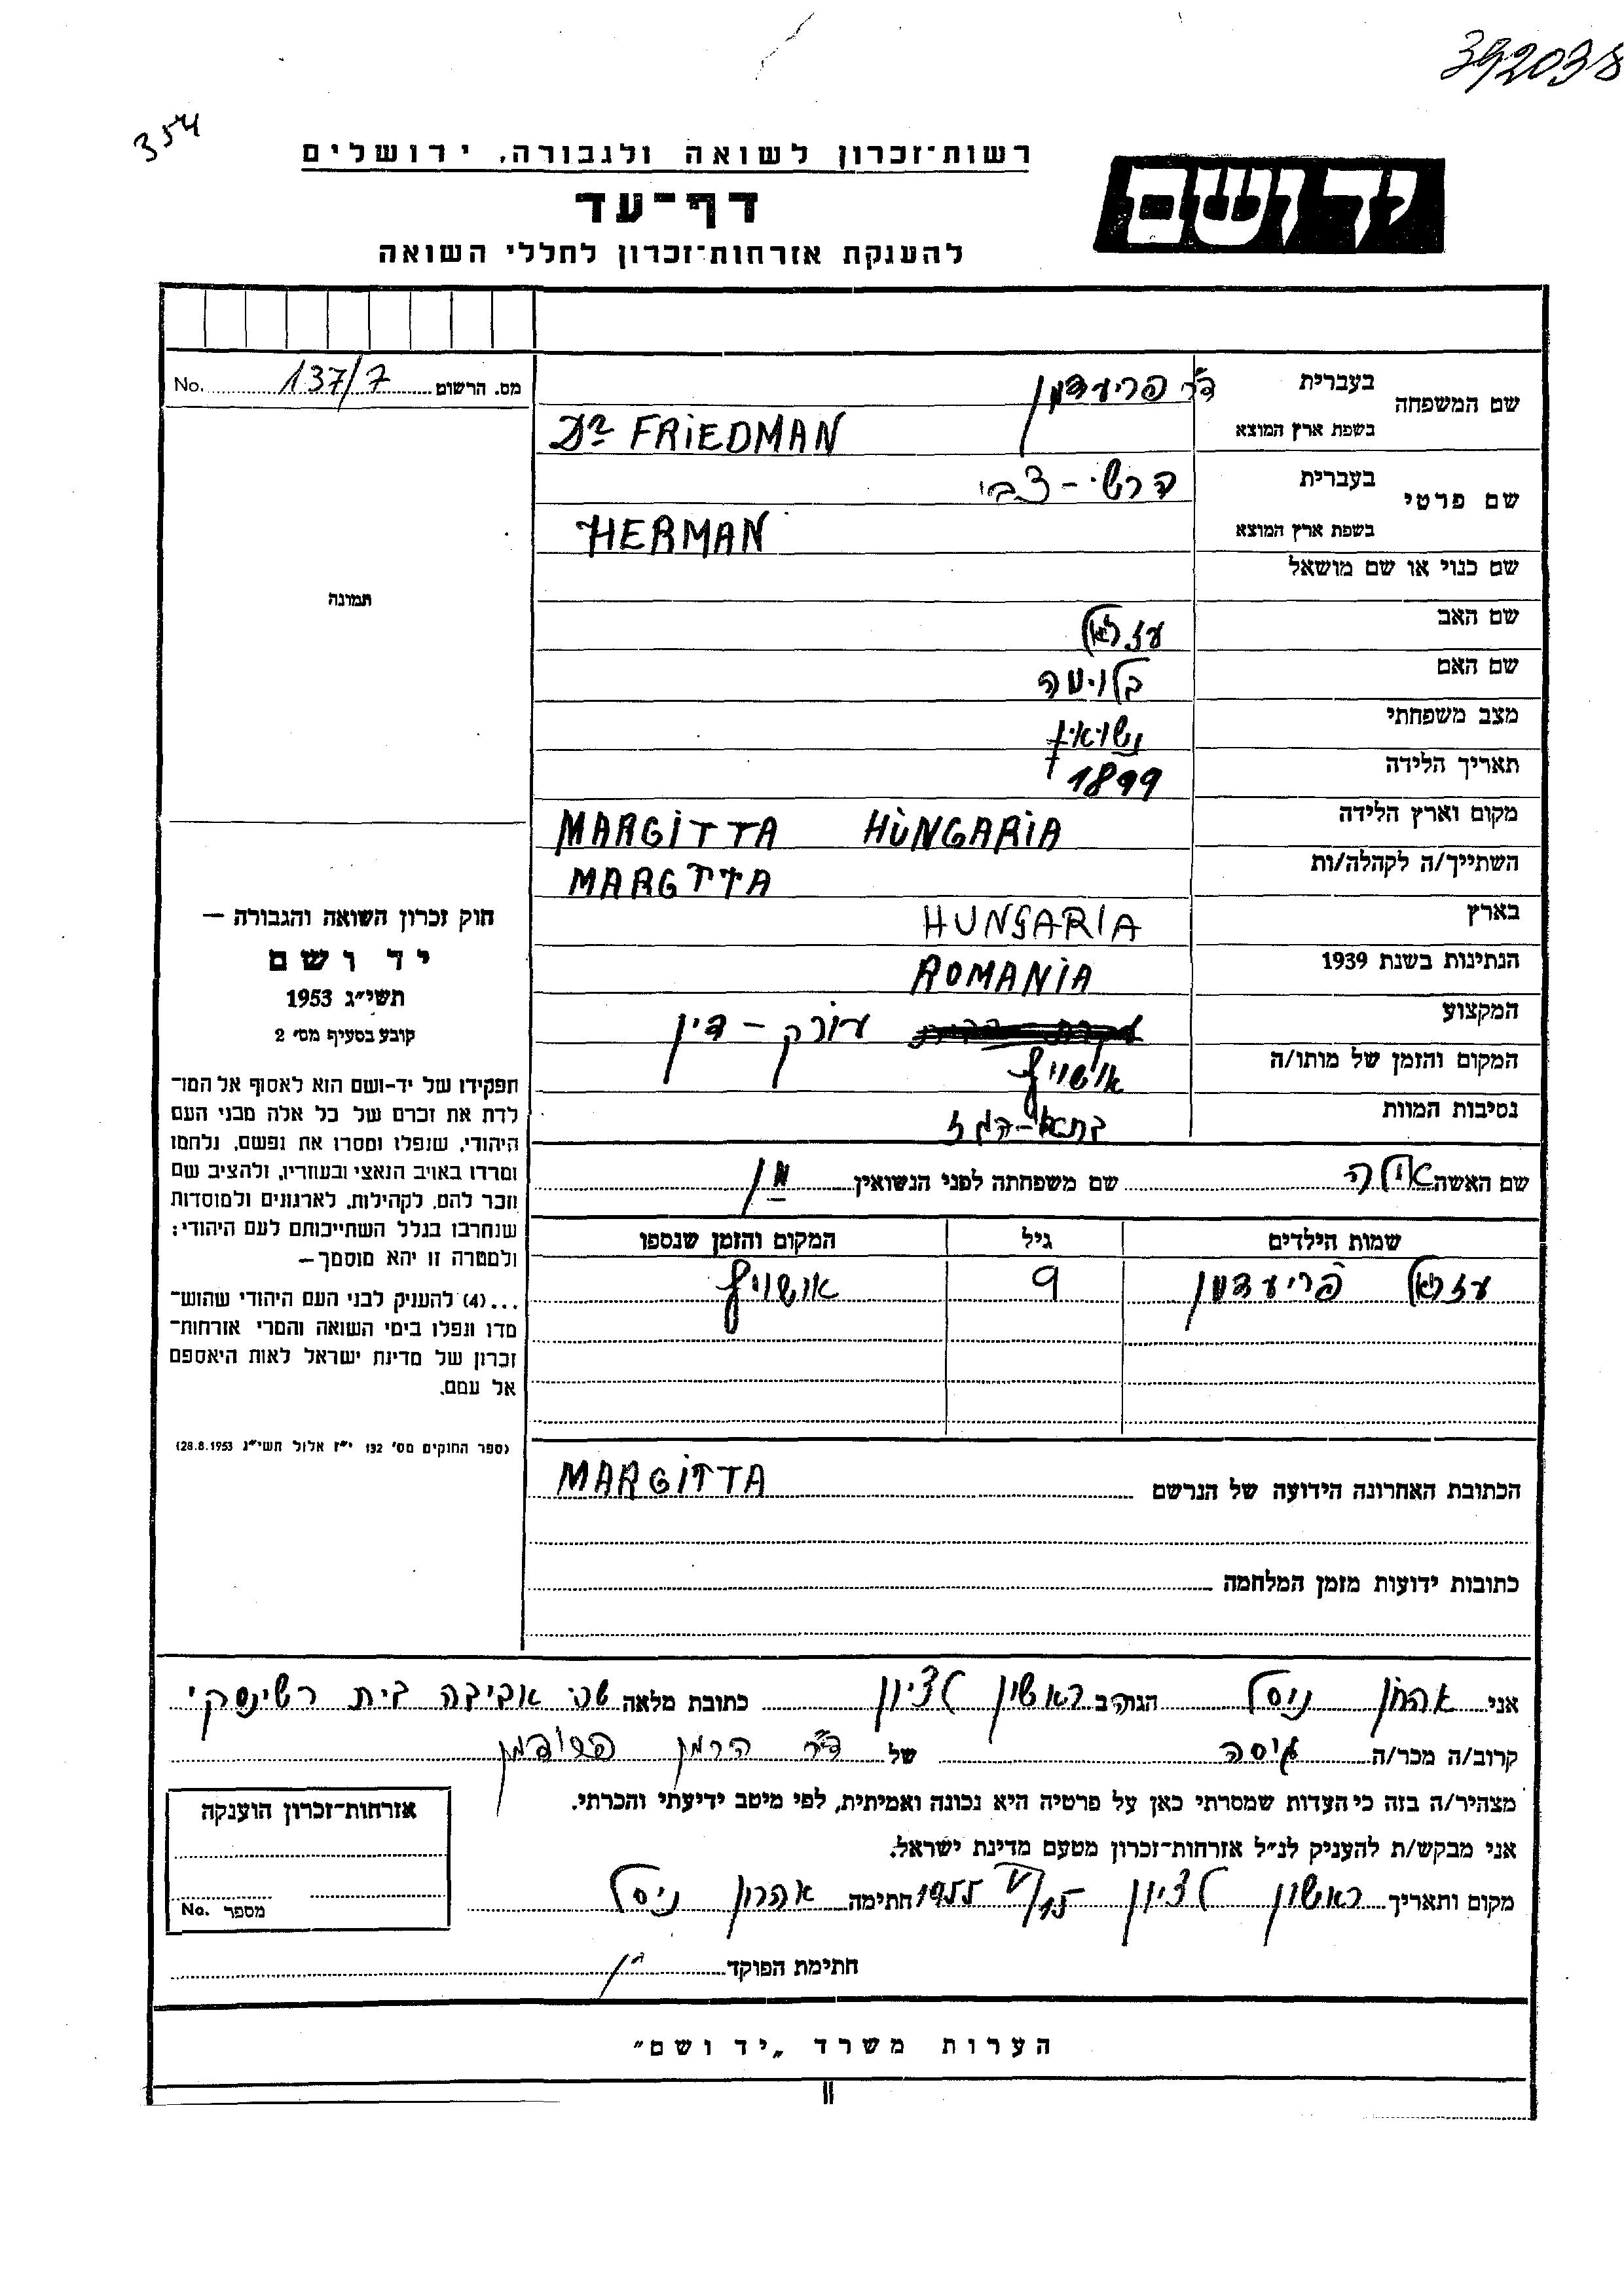 392038
354
יד ושם
רשות־זכרון לשואה ולגבורה, ירושלים
דף־עד
להענקת אזרחות־זכרון לחללי השואה
מס. הרשום 137/7 No.
שם המשפחה
בעברית ד״ר פריעדמן
בשפת ארץ המוצא Dr FRIEDMAN
שם פרטי
בעברית הרשי - צבי
בשפת ארץ המוצא HERMAN
שם כנוי או שם מושאל
שם האב עזריאל
שם האם בלומה
מצב משפחתי נשואין
תאריך הלידה 1899
מקום וארץ הלידה MARGITTA HUNGARIA
השתייך/ה לקהלה/ות MARGITTA
בארץ HUNGARIA
הנתינות בשנת 1939 ROMANIA
המקצוע עורק - דין
המקום והזמן של מותו/ה אושויץ
נסיבות המוות בתאי-הגז
שם האשה שם משפחתה לפני הנשואין
שמות הילדים גיל המקום והזמן שנספו
עזריאל פריעדמן 9 אושויץ
הכתובת האחרונה הידועה של הנרשם MARGITTA
כתובות ידועות מזמן המלחמה
תמונה
חוק זכרון השואה והגבורה —
יד ושם
תשי״ג 1953
קובע בסעיף מס׳ 2
תפקידו של יד-ושם הוא לאסוף אל המו־
לדת את זכרם של כל אלה מבני העם
היהודי, שנפלו ומסרו את נפשם, נלחמו
ומרדו באויב הנאצי ובעוזריו, ולהציב שם
וזכר להם, לקהילות, לארגונים ולמוסדות
שנחרבו בגלל השתייכותם לעם היהודי;
ולמטרה זו יהא מוסמך—
...(4) להעניק לבני העם היהודי שהוש־
מדו ונפלו בימי השואה והמרי אזרחות־
זכרון של מדינת ישראל לאות היאספם
אל עמם.
(ספר החוקים מס׳ 132 י״ז אלול תשי״ג 28.8.1953)
אני אהרון ניסל הגר/ה ב ראשון לציון כתובת מלאה שכ׳ אביבה בית רשינסקי
קרוב/ה מכר/ה גיסה של ד״ר הרמן פרידמן
מצהיר/ה בזה כי העדות שמסרתי כאן על פרטיה היא נכונה ואמיתית, לפי מיטב ידיעתי והכרתי.
אני מבקש/ת להעניק לנ״ל אזרחות־זכרון מטעם מדינת ישראל.
מקום ותאריך ראשון לציון 15/V 1955 חתימה אהרון ניסל
חתימת הפוקד
אזרחות־זכרון הוענקה
מספר No.
הערות משרד „יד ושם״